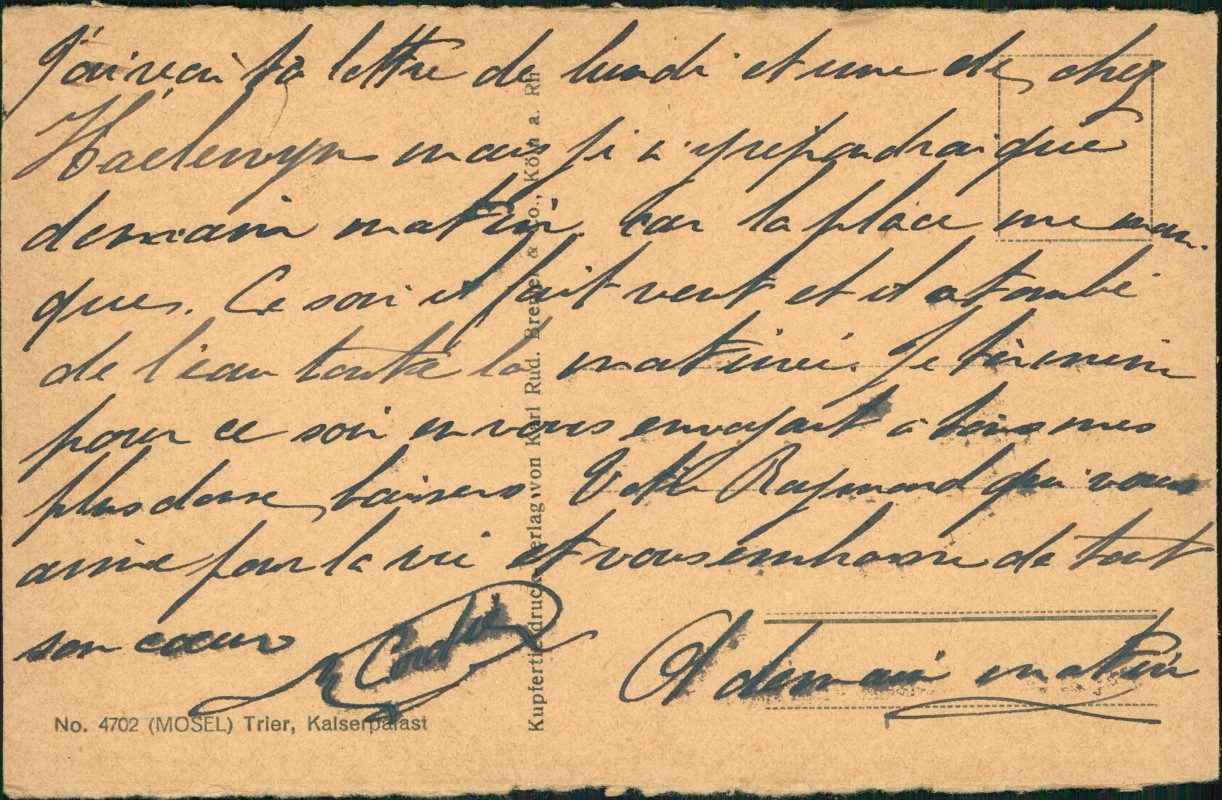 J'ai reçu ta lettre de lundi et une de chez
mais je n'y repondrai que
demain matin car la place me man-
ques. Ce soir il fait vent et il a tombé
de l'eau toute la matinée. Je termine
pour ce soir en vous envoyant à tous mes
plus doux baisers Votre Raymond qui vous
aime pour la vie et vous embrasse de tout
son cœur
A demain matin
No. 4702 (MOSEL) Trier, Kaiserpalast
Kupfertiefdruck-Verlag von Karl Rud. Bremer & Co., Köln a. Rh